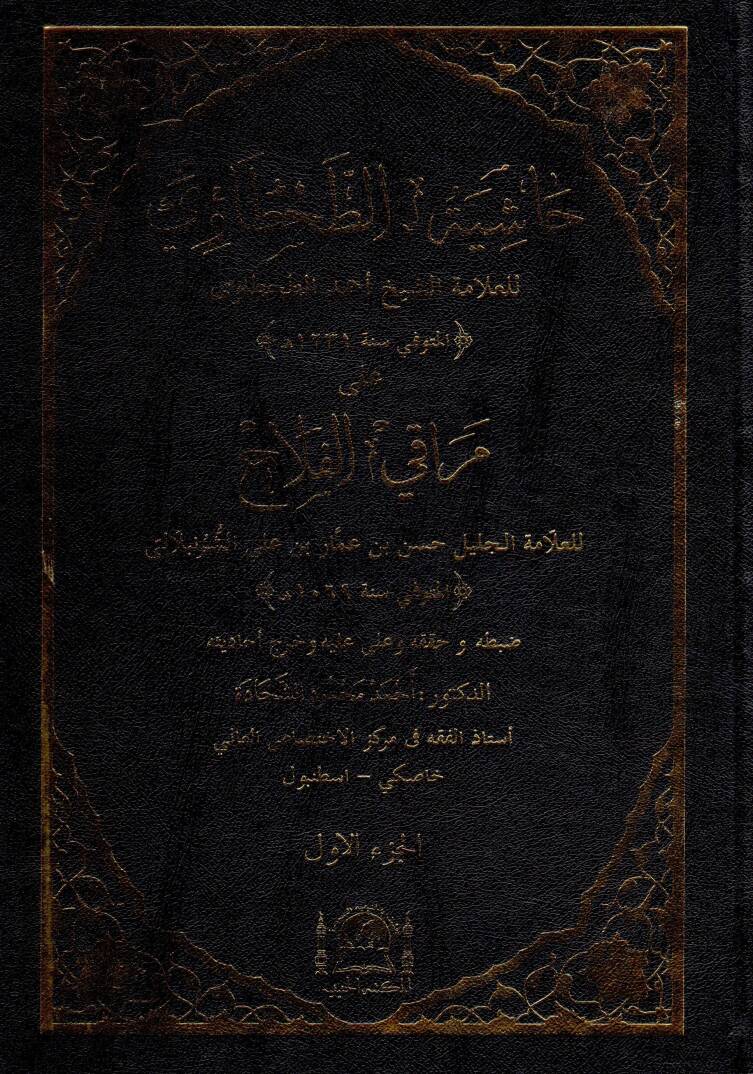 حَاشِيَة الطَّحْطَاوِيّ
للعلامة الشيخ أحمد الطحطاوي
﴿المتوفي سنة ١٢٣١هـ﴾
على
مَرَاقِي الفَلَاحِ
للعلّامة الجليل حسن بن عمَّار بن علي الشُّرُنبلالي
﴿المتوفي سنة ١٠٦٩هـ﴾
ضبطه و حققه وعلى عليه وخرج أحاديثه
الدكتور : أَحْمَدْ مَحْمُود الشَّحَادَة
أستاذ الفقه فى مركز الاختصاص العالي
خاصكي – اسطنبول
الجزء الاول